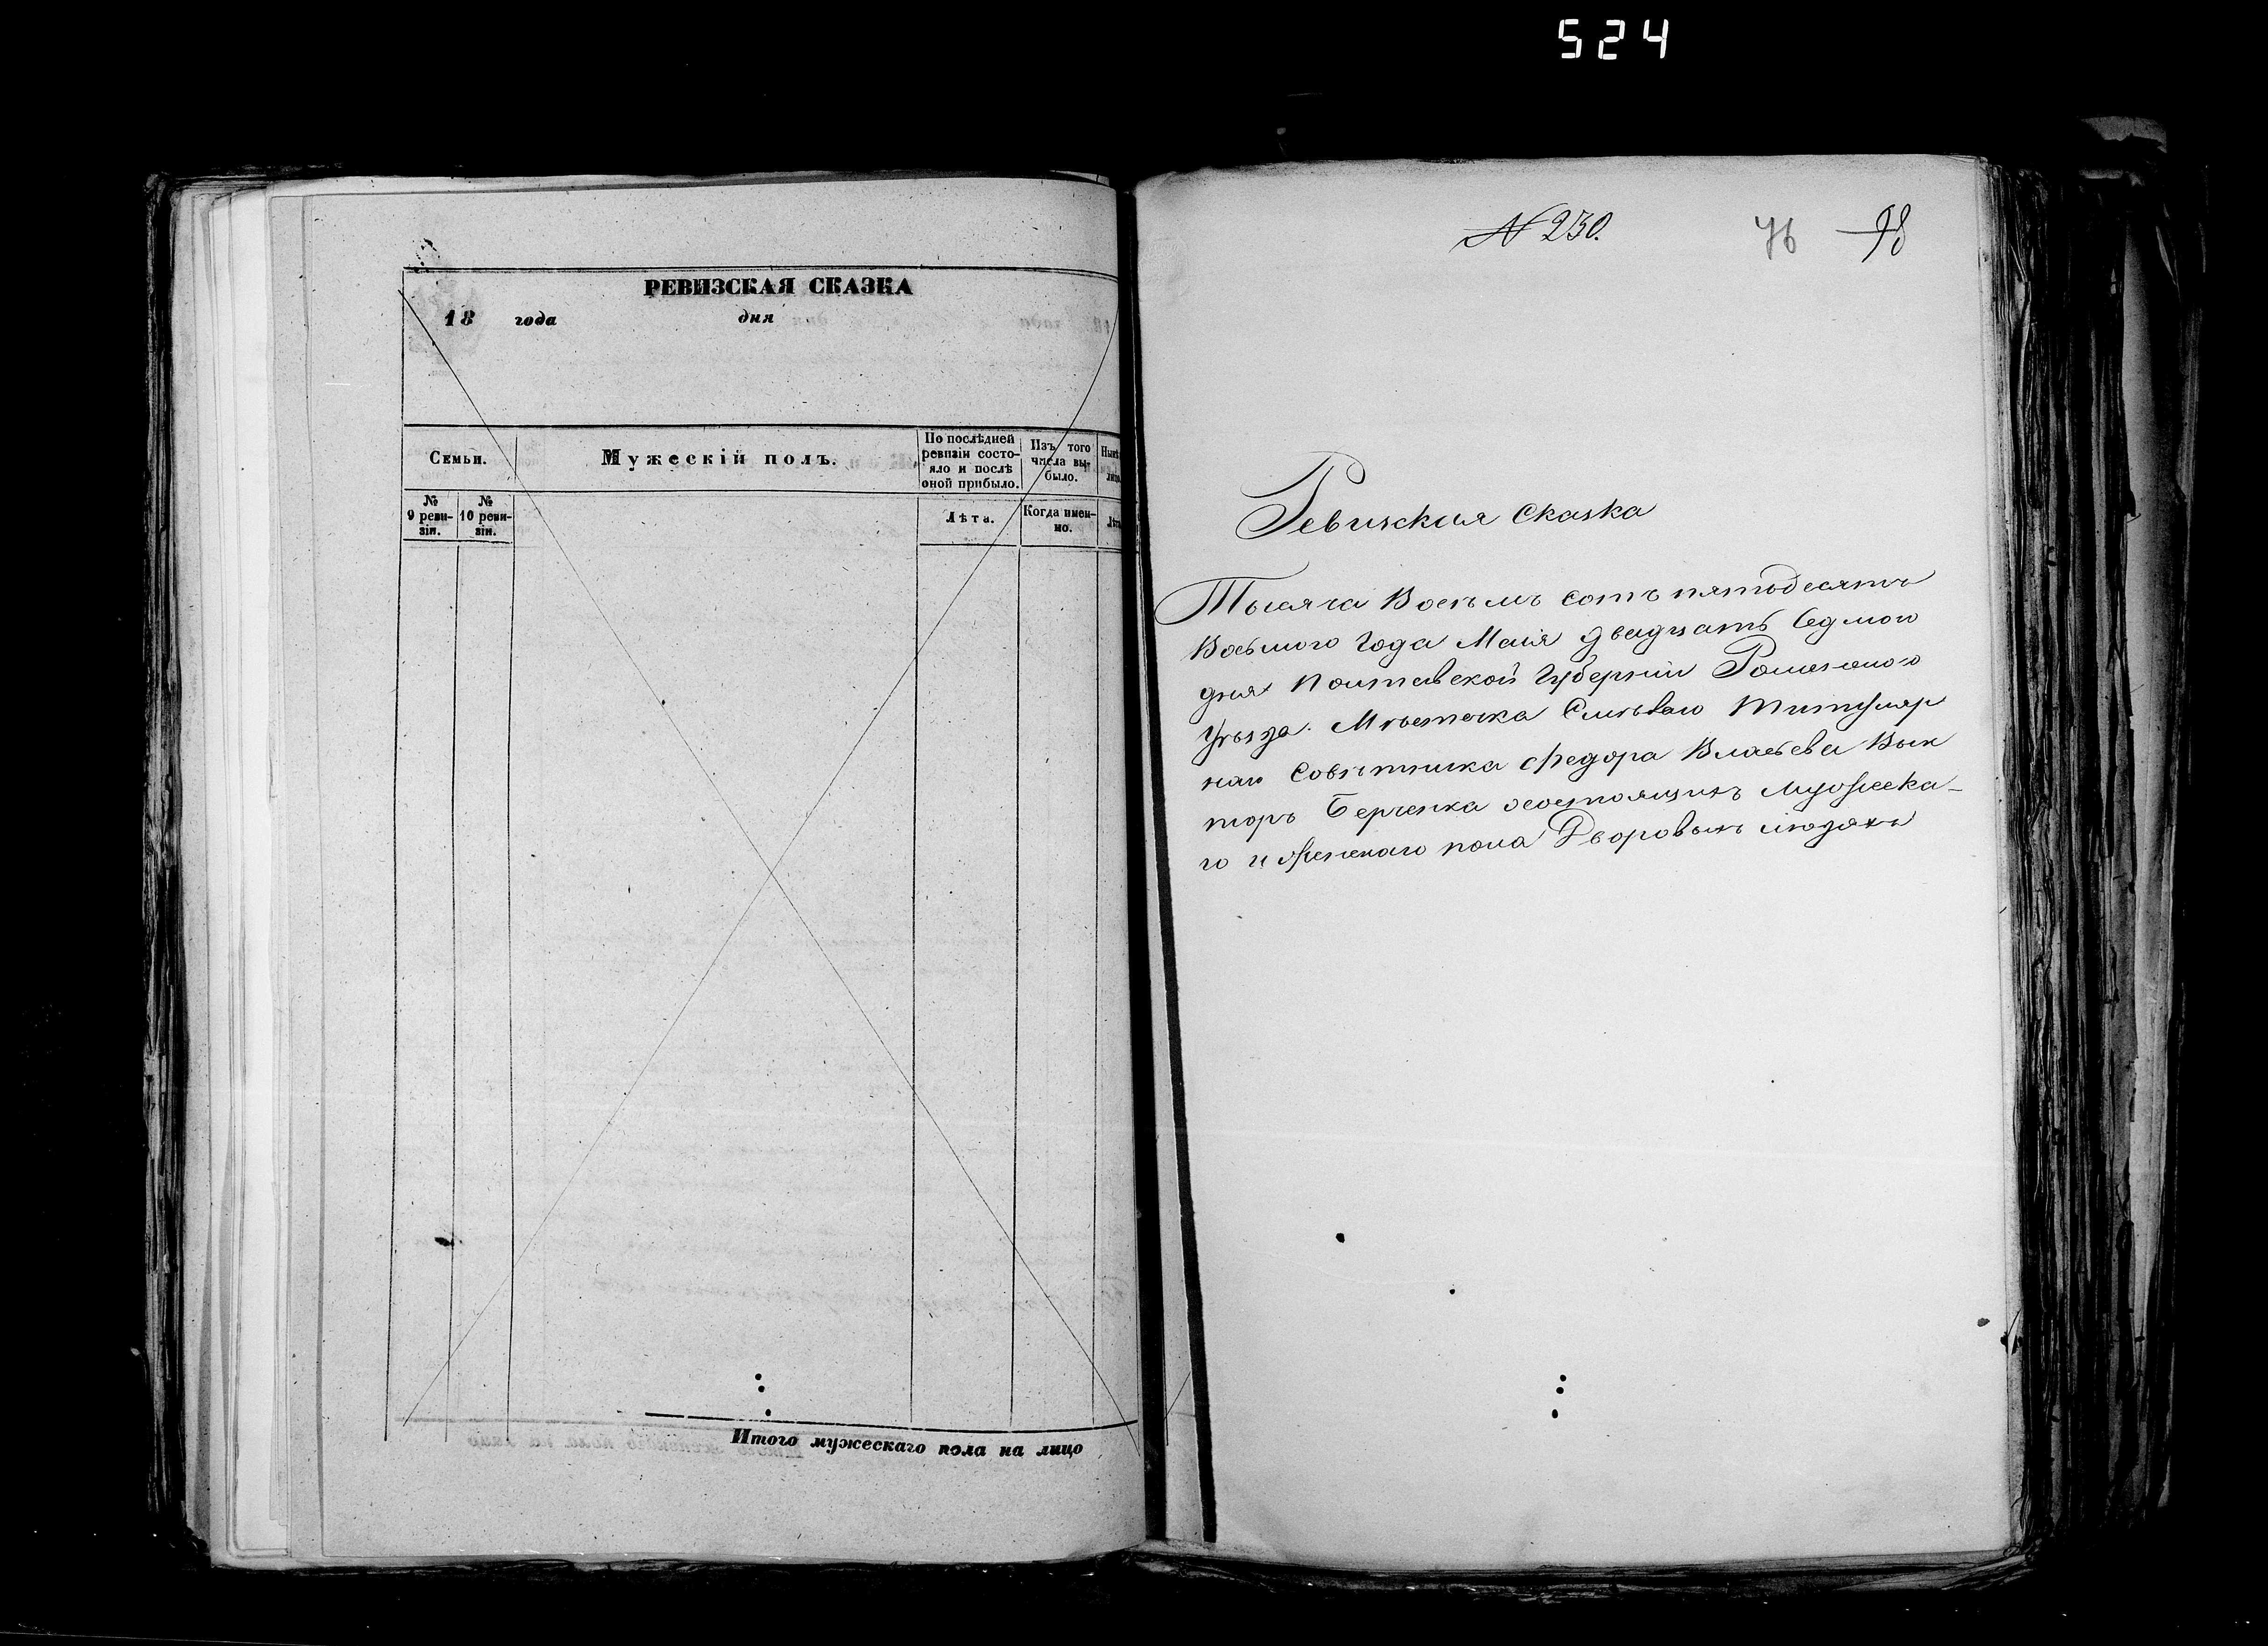 524
РЕВИЗСКАЯ СКАЗКА
18 года дня
Семьи.
Мужескій полъ.
По послѣдней
ревизіи состо-
яло и послѣ
оной прибыло.
Изъ того
числа вы-
было.
№
9 реви-
зіи.
№
10 реви-
зіи.
Лѣта.
Когда имен-
но.
Итого мужескаго пола на лицо
№ 230.
76 98
Ревизская сказка
Тысяча Восемъ сотъ пятьдесятъ
Восьмого Года Маія двадцать седмого
дня Полтавской Губерніи Роменского
Уѣзда. Мѣстечка Смѣлаго Титуляр
наго Совѣтника Федора
о состоящихъ мужеска-
го и женскаго пола Дворовыхъ людяхъ